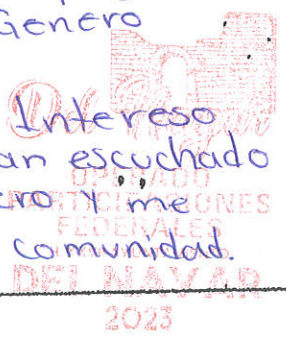 Genero
Intereso
an escuchado
ero y me
comunidad.
FEDERALES
DEL NAYAR
2023